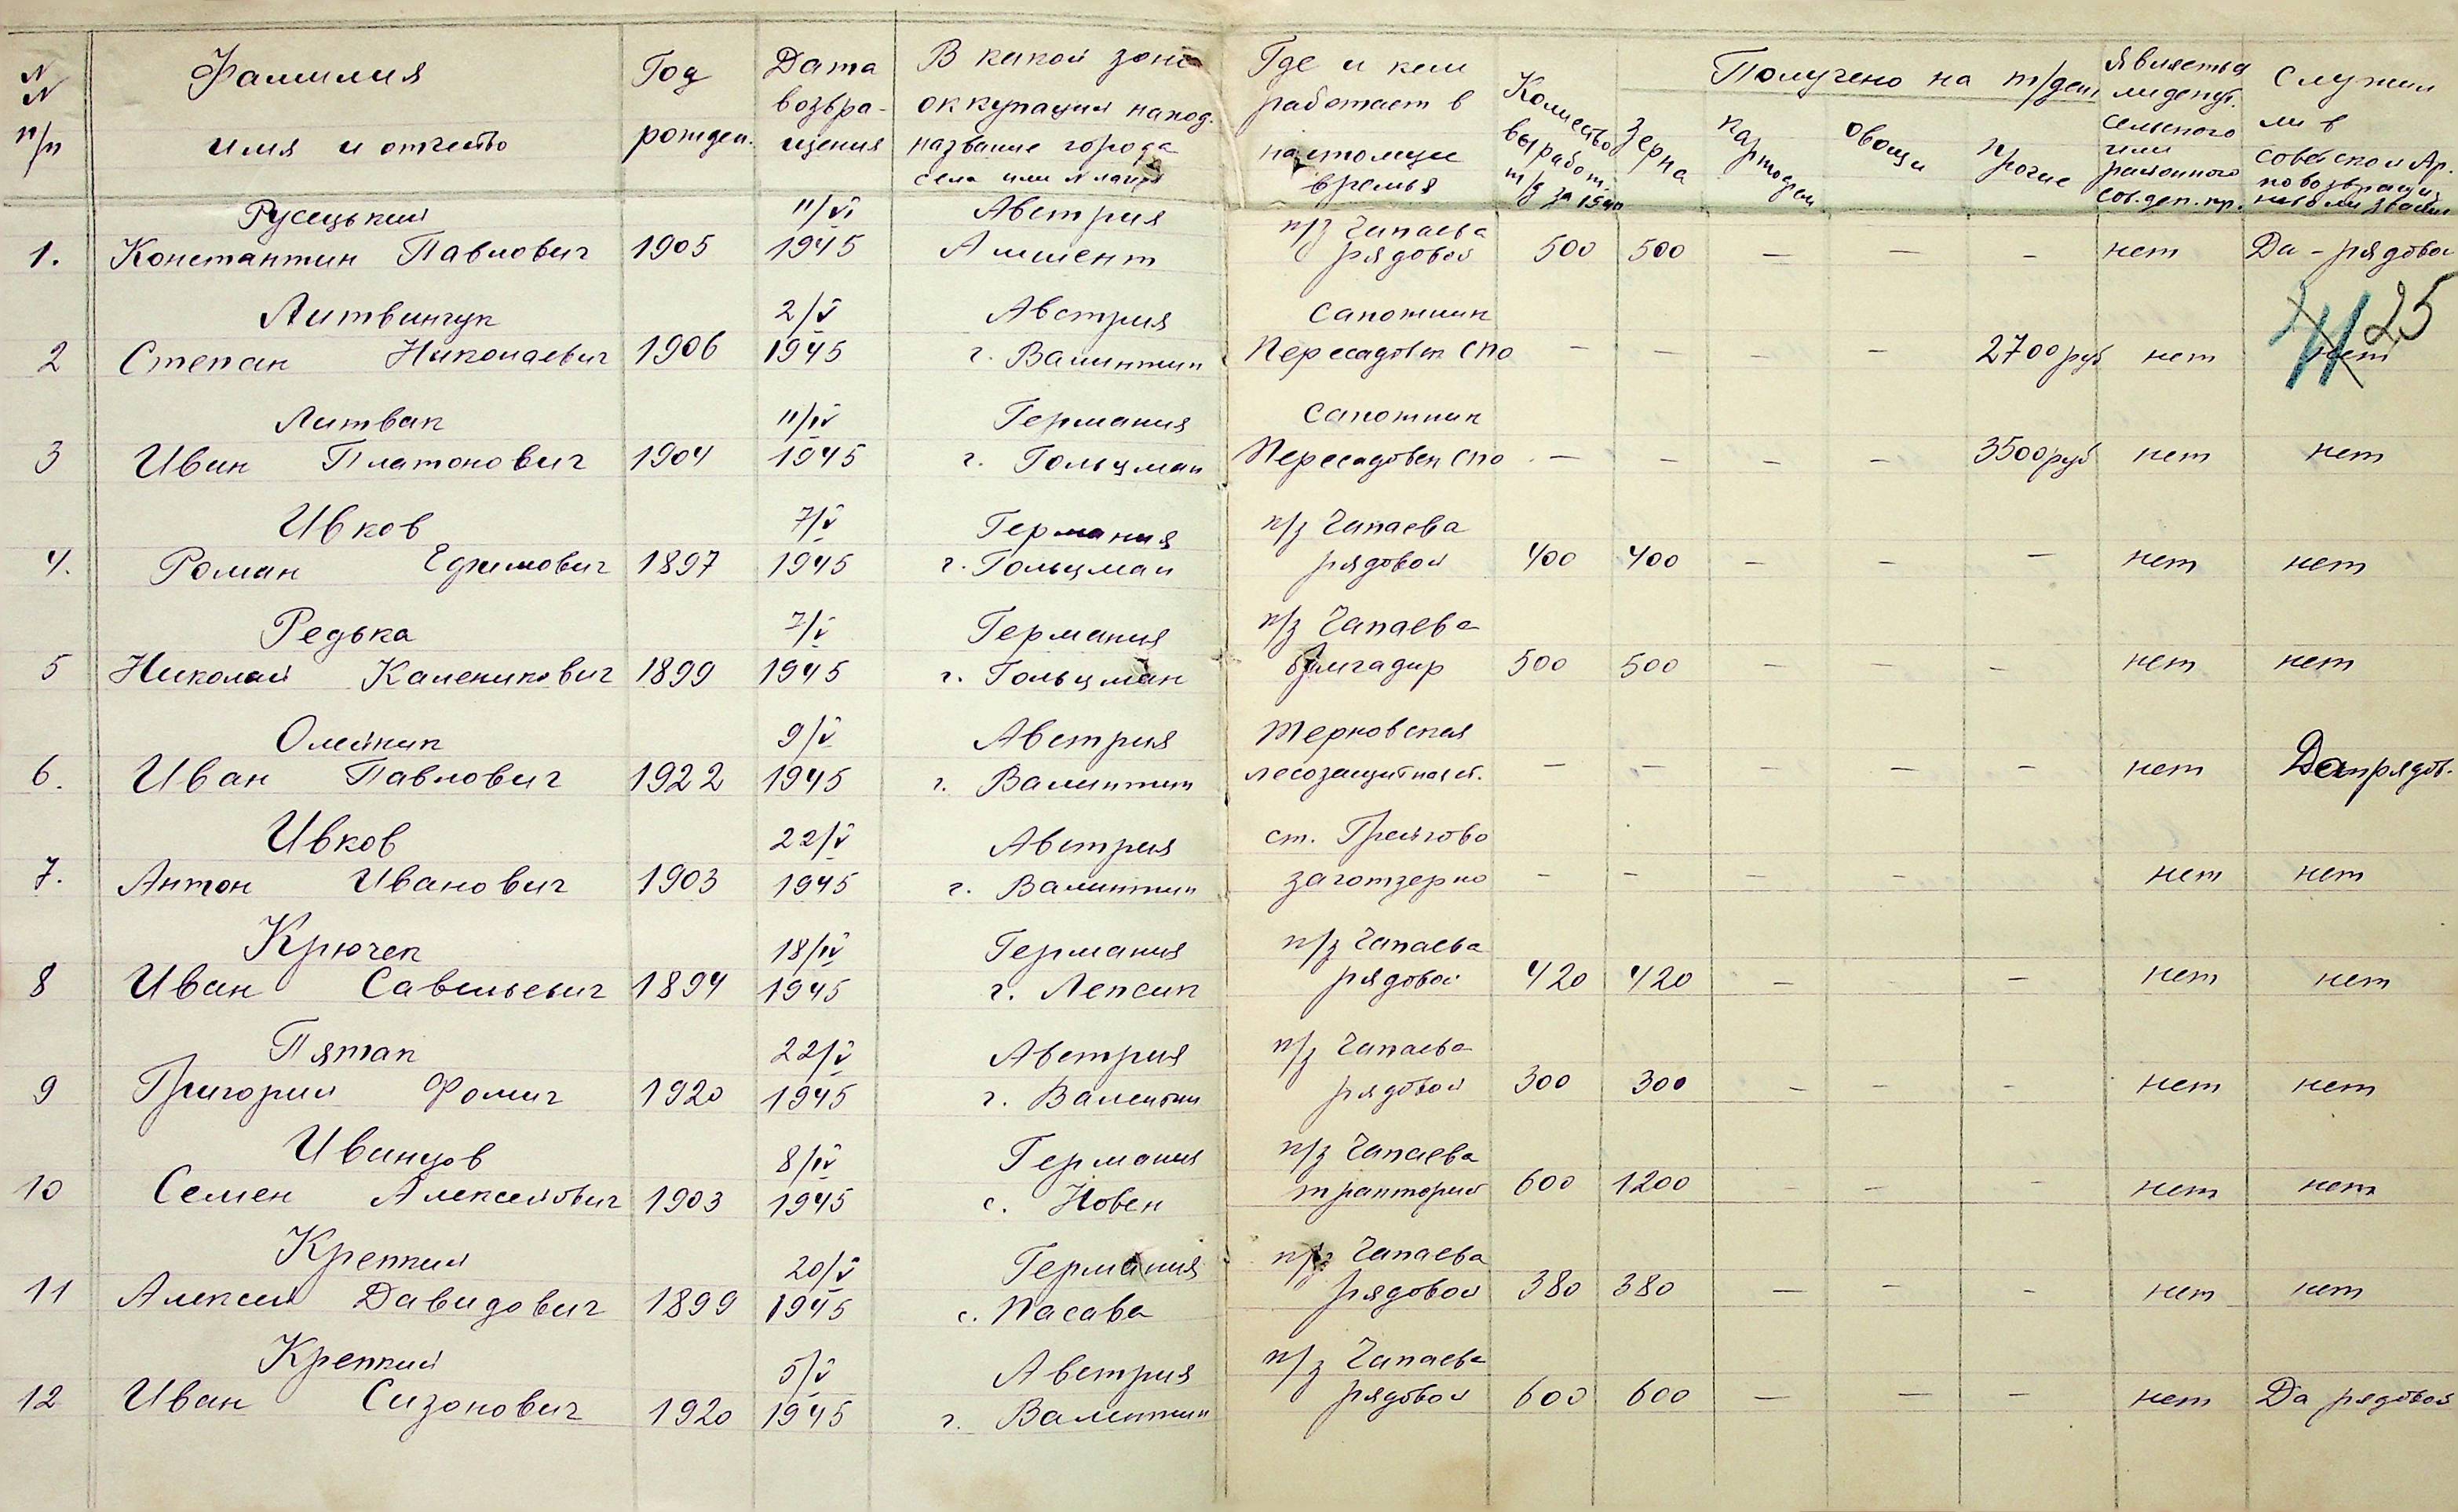 N N п/п
Фамилия имя и отчество
Год рожден.
Дата возвращения
В какой зоне оккупации наход. название города села или N лагеря
Где и кем работает в настоящее время
Количество выработ. т/д за 15 мес
Получено на т/день
Зерна
картофель
овощи
прочие
Является ли депут. сельского или районного сов. деп. тр.
Служил ли в советской Ар. по возвращению
Русецький 11/VI Австрия п/з Чапаева
1. Константин Павлович 1905 1945 Амшент рядовой 500 500 — — — нет Да - рядовой
Литвинчук 2/V Австрия сапожник 25
2 Степан Николаевич 1906 1945 г. Валинтин Пересадовск СПО — — — — 2700 руб нет нет
Литвак 11/IV Германия сапожник
3 Иван Платонович 1904 1945 г. Гольцман Пересадовск СПО — — — — 3500 руб нет нет
Ивков 7/V Германия п/з Чапаева
4. Роман Ефимович 1897 1945 г. Гольцман рядовой 400 400 — — — нет нет
Редька 7/V Германия п/з Чапаева
5 Николай Каленикович 1899 1945 г. Гольцман бригадир 500 500 — — — нет нет
Олейник 9/V Австрия Терновская
6. Иван Павлович 1922 1945 г. Валинтин лесозащитная ст. — — — — — нет Да рядов.
Ивков 22/V Австрия ст. Грейгово
7. Антон Иванович 1903 1945 г. Валинтин заготзерно — — — — нет нет
Крючек 18/IV Германия п/з Чапаева
8 Иван Савельевич 1894 1945 г. Лепсик рядовой 420 420 — — нет нет
Пятак 22/V Австрия п/з Чапаева
9 Григорий Фомич 1920 1945 г. Валентин рядовой 300 300 — — — нет нет
Иванцов 8/IV Германия п/з Чапаева
10 Семен Алексейович 1903 1945 с. Новен тракторист 600 1200 — — — нет нет
Крепкий 20/V Германия п/з Чапаева
11 Алексей Давидович 1899 1945 с. Пасава рядовой 380 380 — — — нет нет
Крепкий 5/V Австрия п/з Чапаева
12 Иван Сизонович 1920 1945 г. Валинтин рядовой 600 600 — — — нет Да рядовой